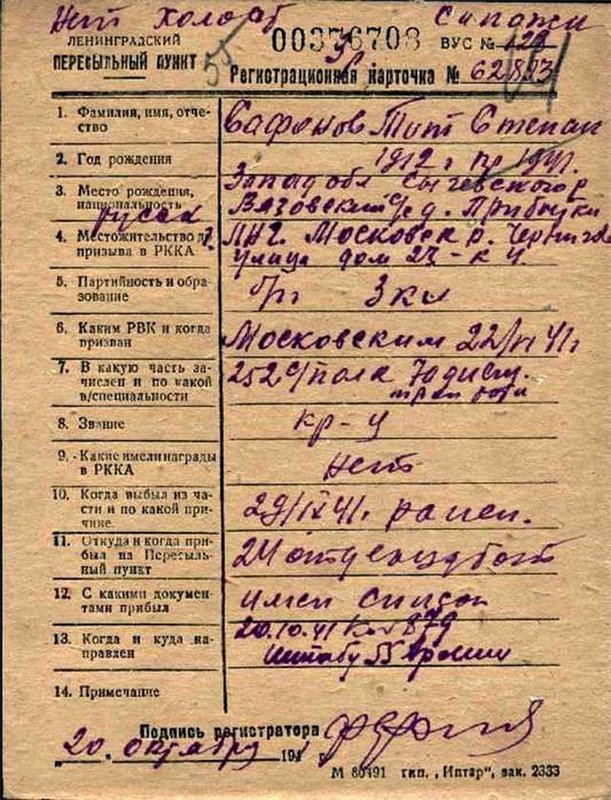 Нет холост Сапожн
ЛЕНИНГРАДСКИЙ 00376708 ВУС № 123
ПЕРЕСЫЛЬНЫЙ ПУНКТ 55 Регистрационная карточка № 62813
1. Фамилия, имя, отче-
ство
Сафонов Тит Степан
2. Год рождения
1912 г пр 1941.
3. Место рождения,
национальность
русск
Запад обл Сычевского р
Вязовский д. Прибытки
4. Местожительство до
призыва в РККА
ЛНГ. Московск р. Чернигов
улица дом 27-к 4.
5. Партийность и обра-
зование
б/п 3 кл
6. Каким РВК и когда
призван
Московским 22/VI 41 г
7. В какую часть за-
числен и по какой
в/специальности
252 с/полк 70 див.
8. Звание
кр-ц
9. Какие имели награды
в РККА
нет
10. Когда выбыл из ча-
сти и по какой при-
чине
29/IX 41 г. ранен.
11. Откуда и когда при-
был на Пересыль-
ный пункт
12. С какими докумен-
тами прибыл
имен список
13. Когда и куда на-
правлен
20.10.41 879
штабу 55 Армии
14. Примечание
Подпись регистратора
„20„ октября 1941
М 80491 гкп. „Иптар“, зак. 2333